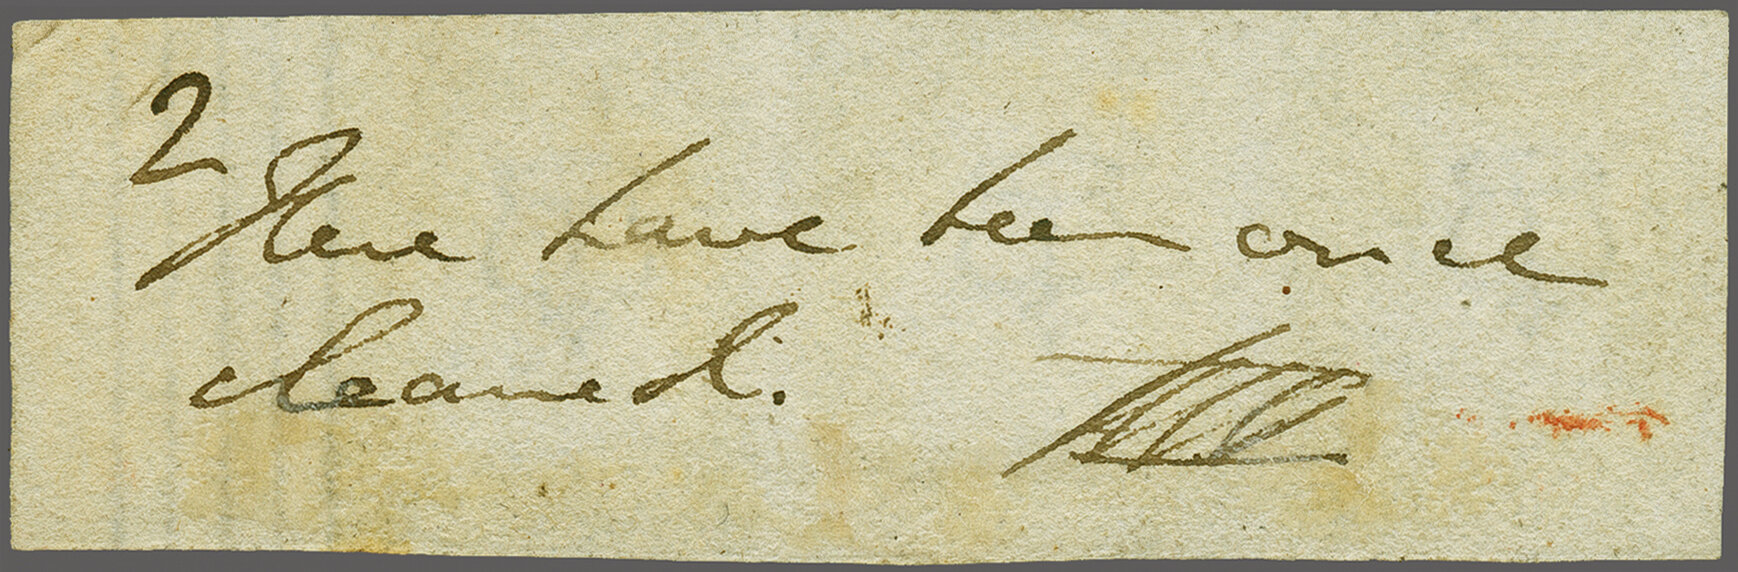 2
These have been once
cleaned.